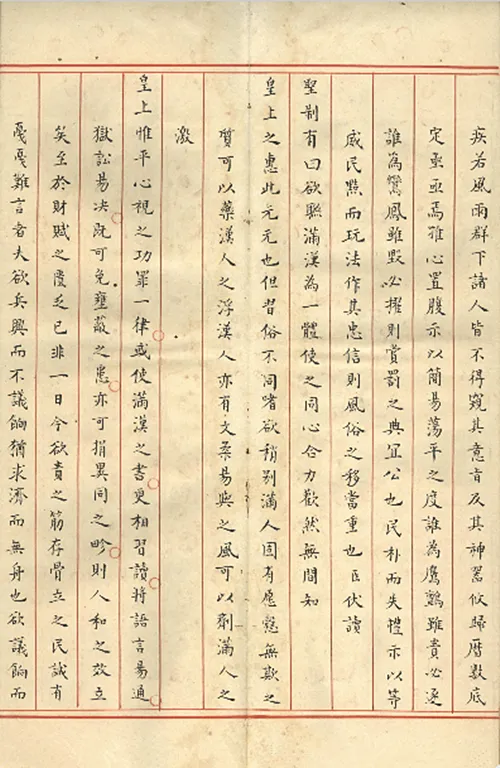 疾若風雨群下諸人皆不得窺其意旨及其神器攸歸曆数底
定亟亟焉推心置腹示以簡易蕩平之度誰為鷹鸇雖貴必逐
誰為鸞鳳雖野必擢則賞罰之典宜公也民朴而失禮示以等
威民黠而玩法作其忠信則風俗之移當重也臣伏讀
聖制有曰欲聯滿漢為一體使之同心合力歡然無間知
皇上之惠此元元也但習俗不同嗜欲稍別滿人固有愿慤無欺之
質可以藥漢人之浮漢人亦有文柔易與之風可以劑滿人之
激
皇上惟平心視之功罪一律或使滿漢之書更相習讀將語言易通
獄訟易决既可免壅蔽之患亦可捐異同之畛則人和之效立
矣至於財賦之匱乏已非一日今欲責之筋存骨立之民誠有
戛戛難言者夫欲兵興而不議餉猶求濟而無舟也欲議餉而